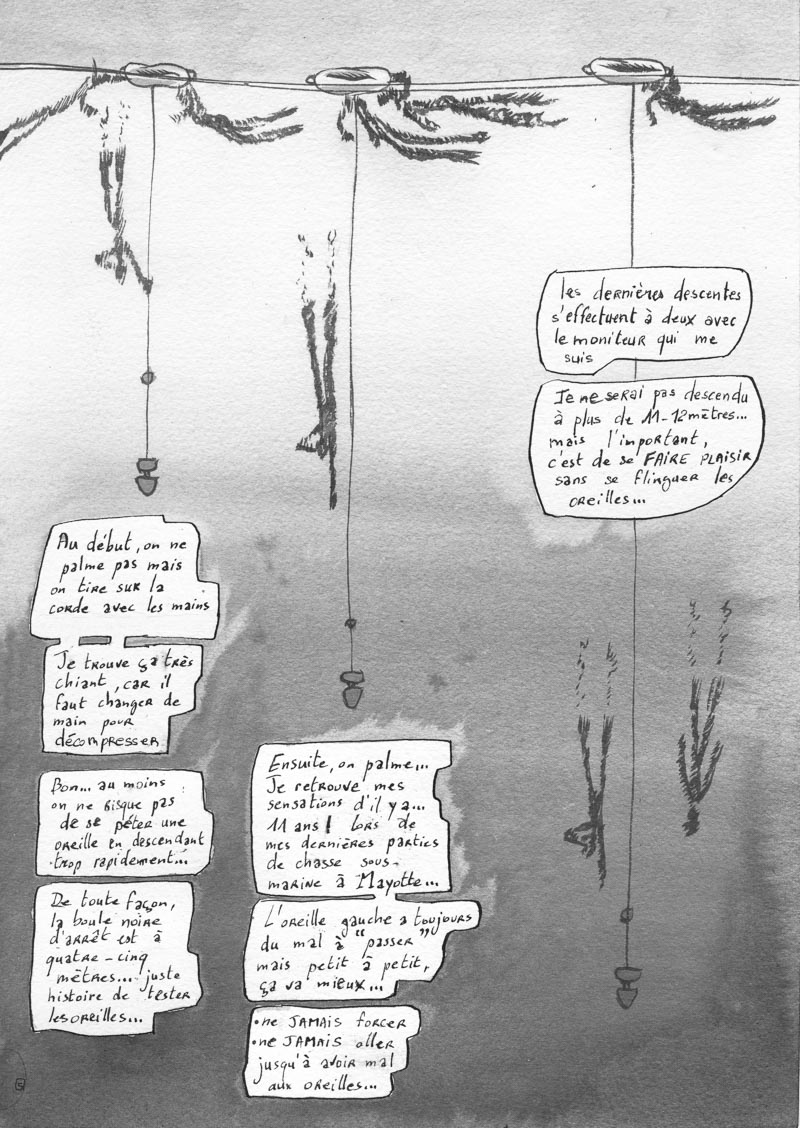 Au début, on ne
palme pas mais
on tire sur la
corde avec les mains
Je trouve ça très
chiant, car il
faut changer de
main pour
décompresser
Bon... au moins
on ne risque pas
de se péter une
oreille en descendant
trop rapidement...
De toute façon,
la boule noire
d'arrêt est à
quatre-cinq
mètres... juste
histoire de tester
les oreilles...
Ensuite, on palme...
Je retrouve mes
sensations d'il y a...
11 ans! Lors de
mes dernières parties
de chasse sous-
marine à Mayotte...
L'oreille gauche a toujours
du mal à "passer"
mais petit à petit,
ça va mieux...
•ne JAMAIS forcer
•ne JAMAIS aller
jusqu'à avoir mal
aux oreilles...
les dernières descentes
s'effectuent à deux avec
le moniteur qui me
suis
Je ne serai pas descendu
à plus de 11-12 mètres...
mais l'important,
c'est de se FAIRE PLAISIR
sans se flinguer les
oreilles...
5